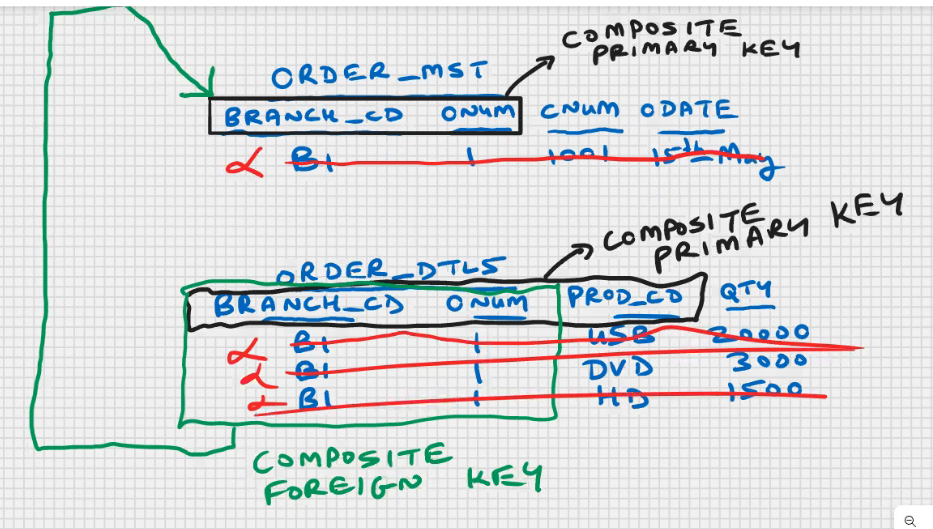 COMPOSITE
PRIMARY KEY
ORDER_MST
BRANCH_CD ONUM CNUM ODATE
α B1 1 1001 15th May
COMPOSITE
PRIMARY KEY
ORDER_DTLS
BRANCH_CD ONUM PROD_CD QTY
α B1 1 USB 20000
α B1 1 DVD 3000
α B1 1 HD 1500
COMPOSITE
FOREIGN KEY